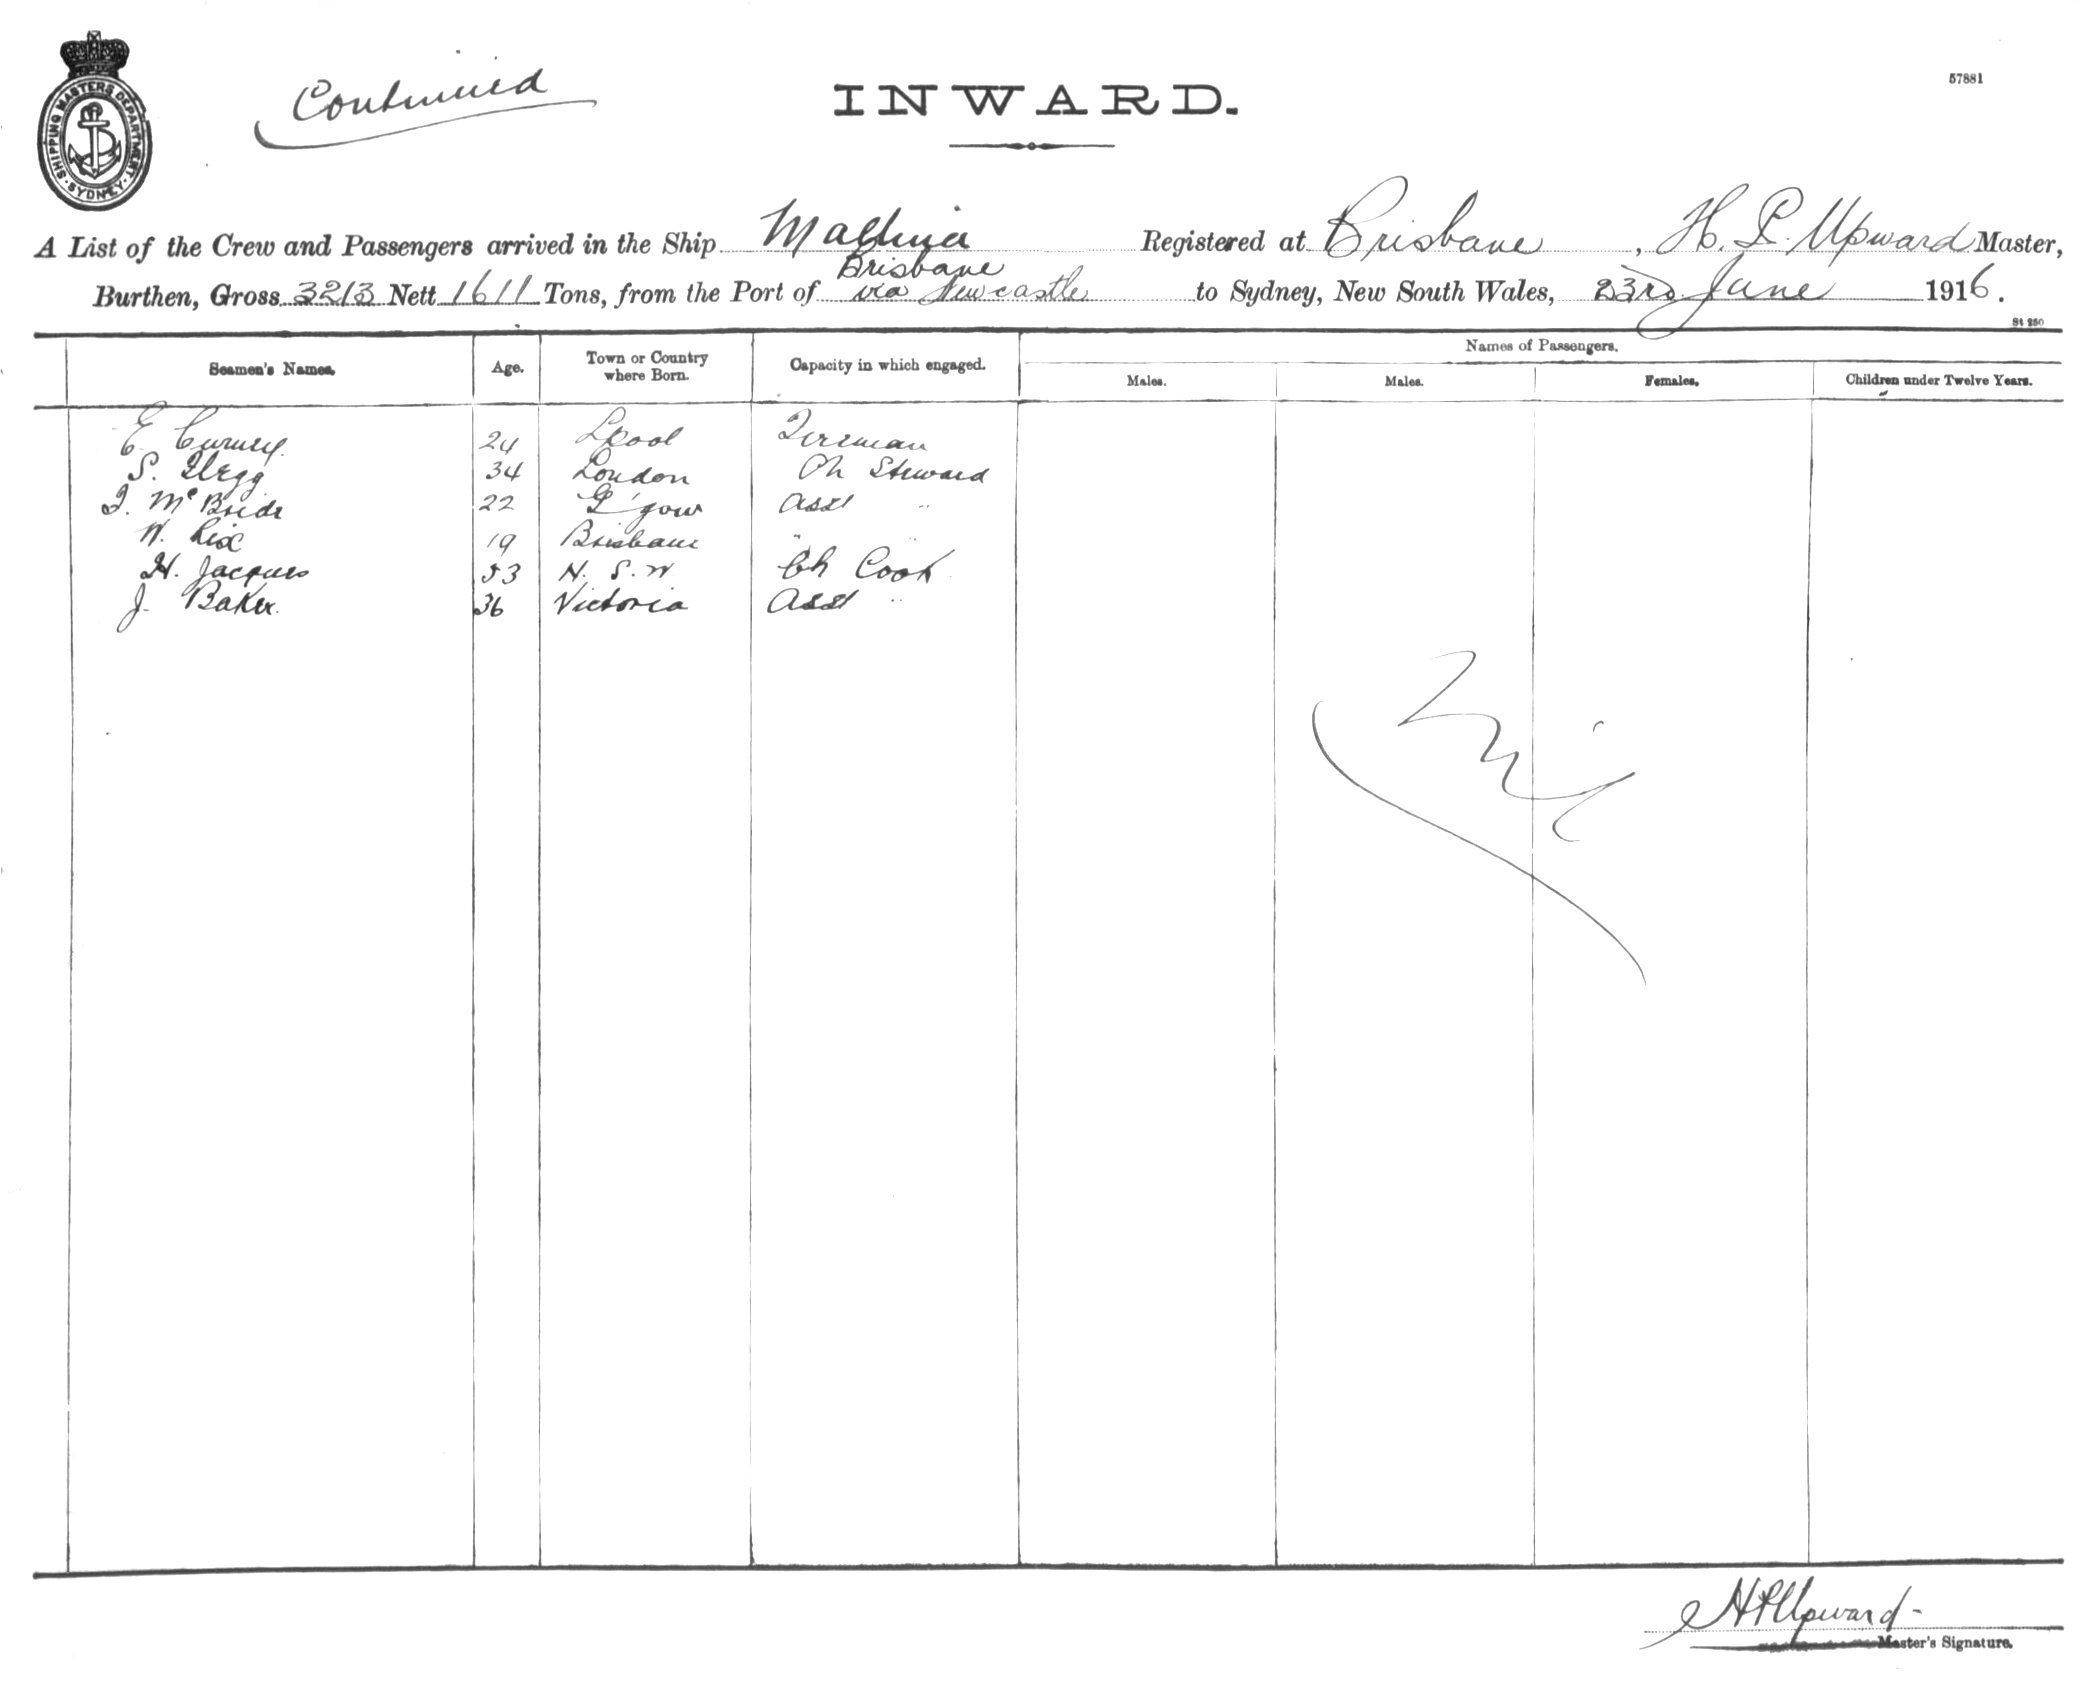 SHIPPING MASTERS DEPARTMENT · SYDNEY ·
Continued
INWARD.
57881
A List of the Crew and Passengers arrived in the Ship Mallina Registered at Brisbane, H. P. Upward Master,
Brisbane
Burthen, Gross 3213 Nett 1611 Tons, from the Port of via Newcastle to Sydney, New South Wales, 23rd June 1916.
St 250
Names of Passengers.
Seamen's Names. Age. Town or Country where Born. Capacity in which engaged. Males. Males. Females. Children under Twelve Years.
E. 24 Lpool Fireman
S. Clegg 34 London Ch Steward
J. McBride 22 G'gow Asst "
W. Rix 19 Brisbane " "
H. Jacques 53 N. S. W Ch Cook
J. Baker. 36 Victoria Asst "
Nil
H P Upward
Master's Signature.